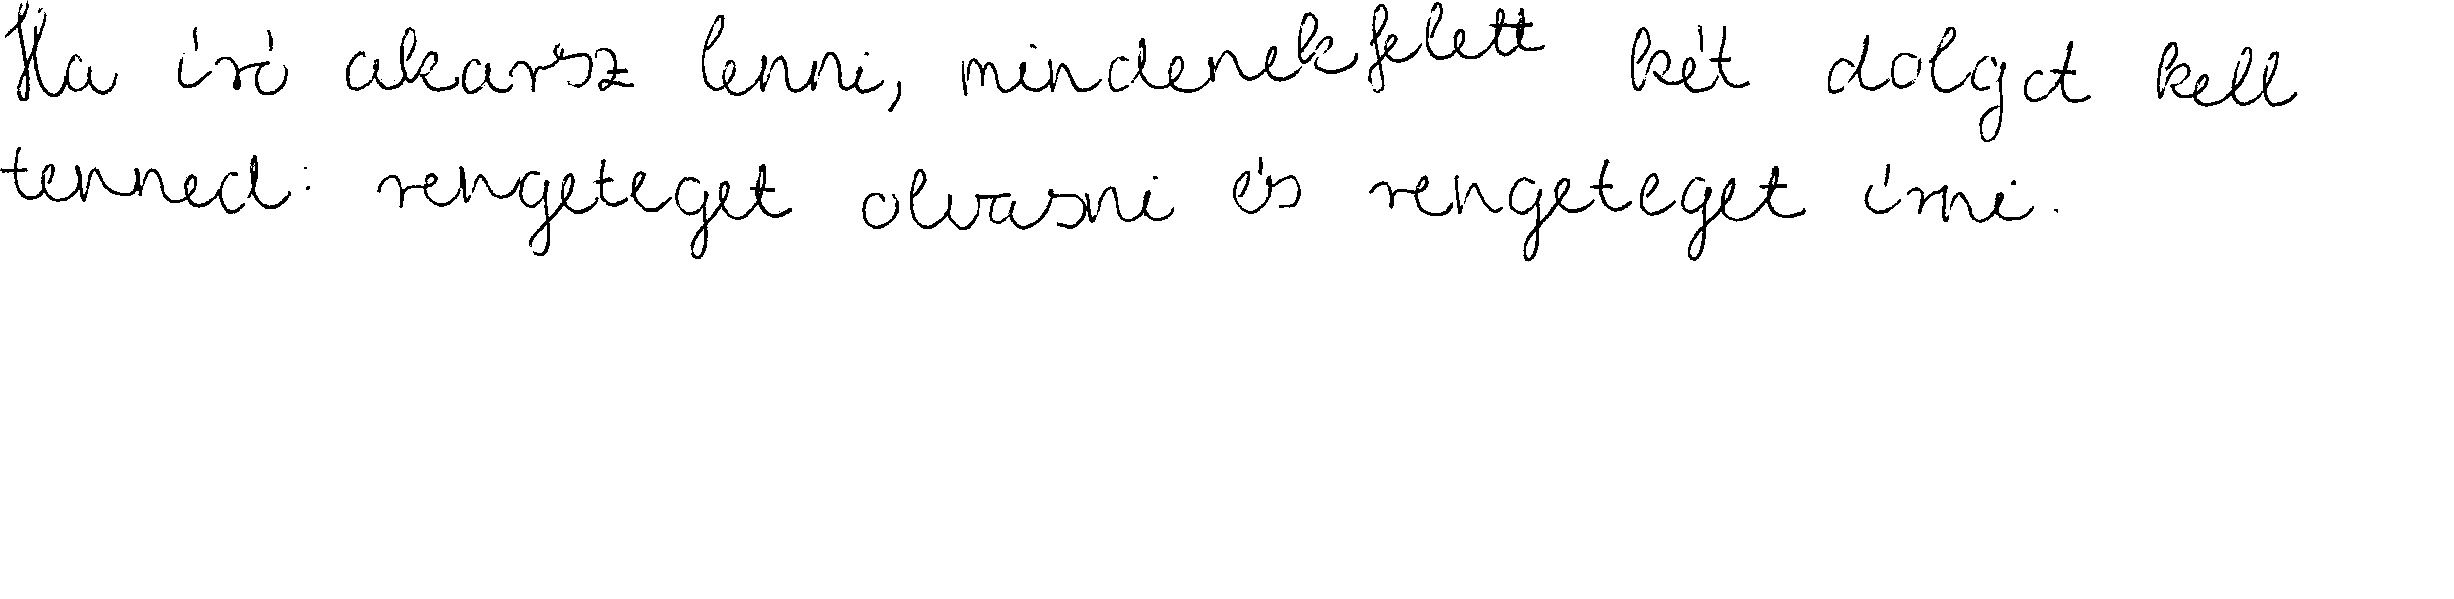 Ha író akarsz lenni, mindenekfelett két dolgot kell
tenned: rengeteget olvasni és rengeteget írni.